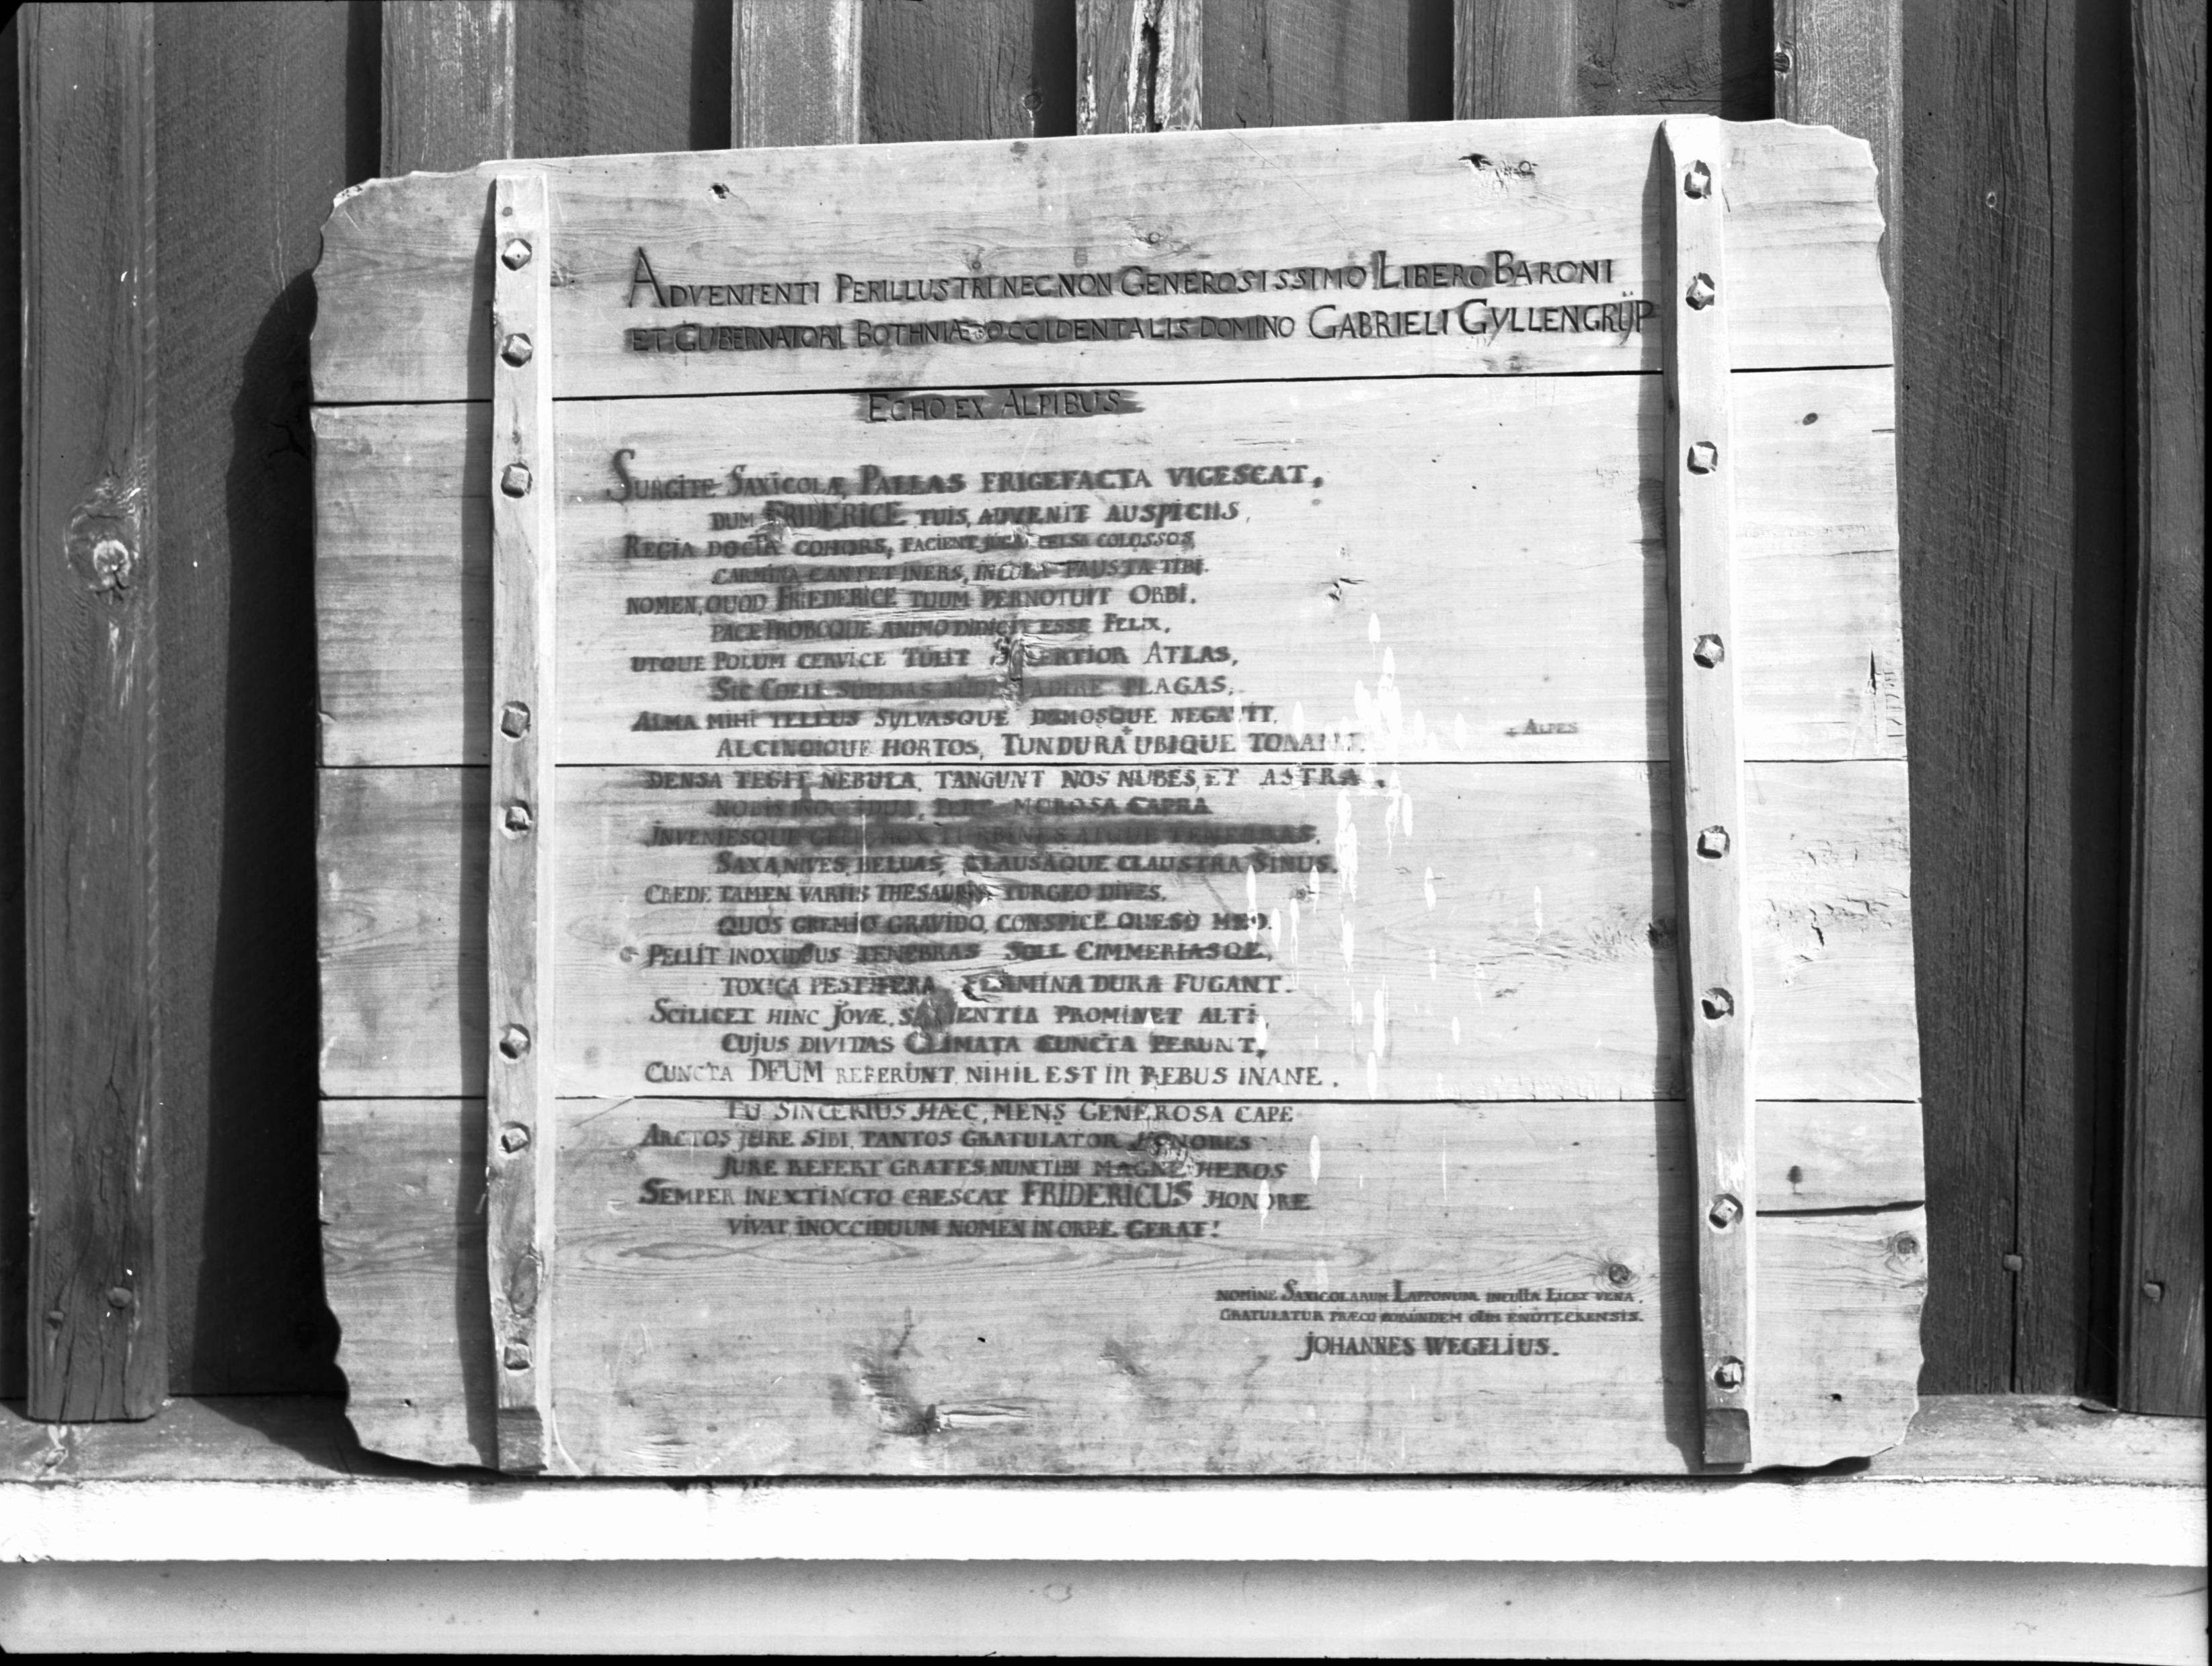 ADVENIENTI PERILLUSTRI NEC NON GENEROSISSIMO LIBERO BARONI
ET GUBERNATORI BOTHNIÆ OCCIDENTALIS DOMINO GABRIELI GYLLENGRIJP
ECHO EX ALPIBUS
SURGITE SAXICOLÆ, PALLAS FRIGEFACTA VIGESCAT,
DUM FRIDERICE TUIS, ADVENIT AUSPICIIS,
REGIA DOCTA COHORS, FACIENT CELSA COLOSSOS
CARMINA CANTET INERS, INCOLA FAUSTA TIBI.
NOMEN, QUOD FRIEDERICE TUUM PERNOTUIT ORBI.
PACE PROBOQUE ANIMO DIDICIT ESSE FELIX,
UTQUE POLUM CERVICE TULIT ATLAS,
SIC COELI SUPERAS ADIRE PLAGAS,
ALMA MIHI TELLUS SYLVASQUE DOMOSQUE NEGAVIT,
ALCINOIQUE HORTOS, TUNDURA + UBIQUE TONANT.
+ ALPES
DENSA TEGIT NEBULA, TANGUNT NOS NUBES, ET ASTRA.
NOBIS MOROSA CAPRA
INVENIESQUE TURBINES ATQUE TENEBRAS,
SAXA, NIVES, BELUAS, CLAUSAQUE CLAUSTRA SINUS.
CREDE TAMEN VARIIS THESAURIS TURGEO DIVES,
QUOS GREMIO GRAVIDO, CONSPICE QUESO MEO.
PELLIT INOXIDUUS TENEBRAS SOLL CIMMERIASQE,
TOXICA PESTIFERA, FLAMINA DURA FUGANT.
SCILICET HINC JOVÆ, SAPIENTIA PROMINET ALTI,
CUJUS DIVITIAS CLIMATA CUNCTA FERUNT,
CUNCTA DEUM REFERUNT, NIHIL EST IN REBUS INANE.
TU SINCERIUS HÆC, MENS GENEROSA CAPE
ARCTOS JURE SIBI, TANTOS GRATULATOR HONORES
JURE REFERT GRATES NUNC TIBI MAGNE HEROS
SEMPER INEXTINCTO CRESCAT FRIDERICUS HONORE
VIVAT, INOCCIDUUM NOMEN IN ORBE GERAT!
NOMINE SAXICOLARUM LAPPONUM INCULTA LICET VENA,
GRATULATUR PRÆCO EORUNDEM OLIM ENOTECKENSIS.
JOHANNES WEGELIUS.